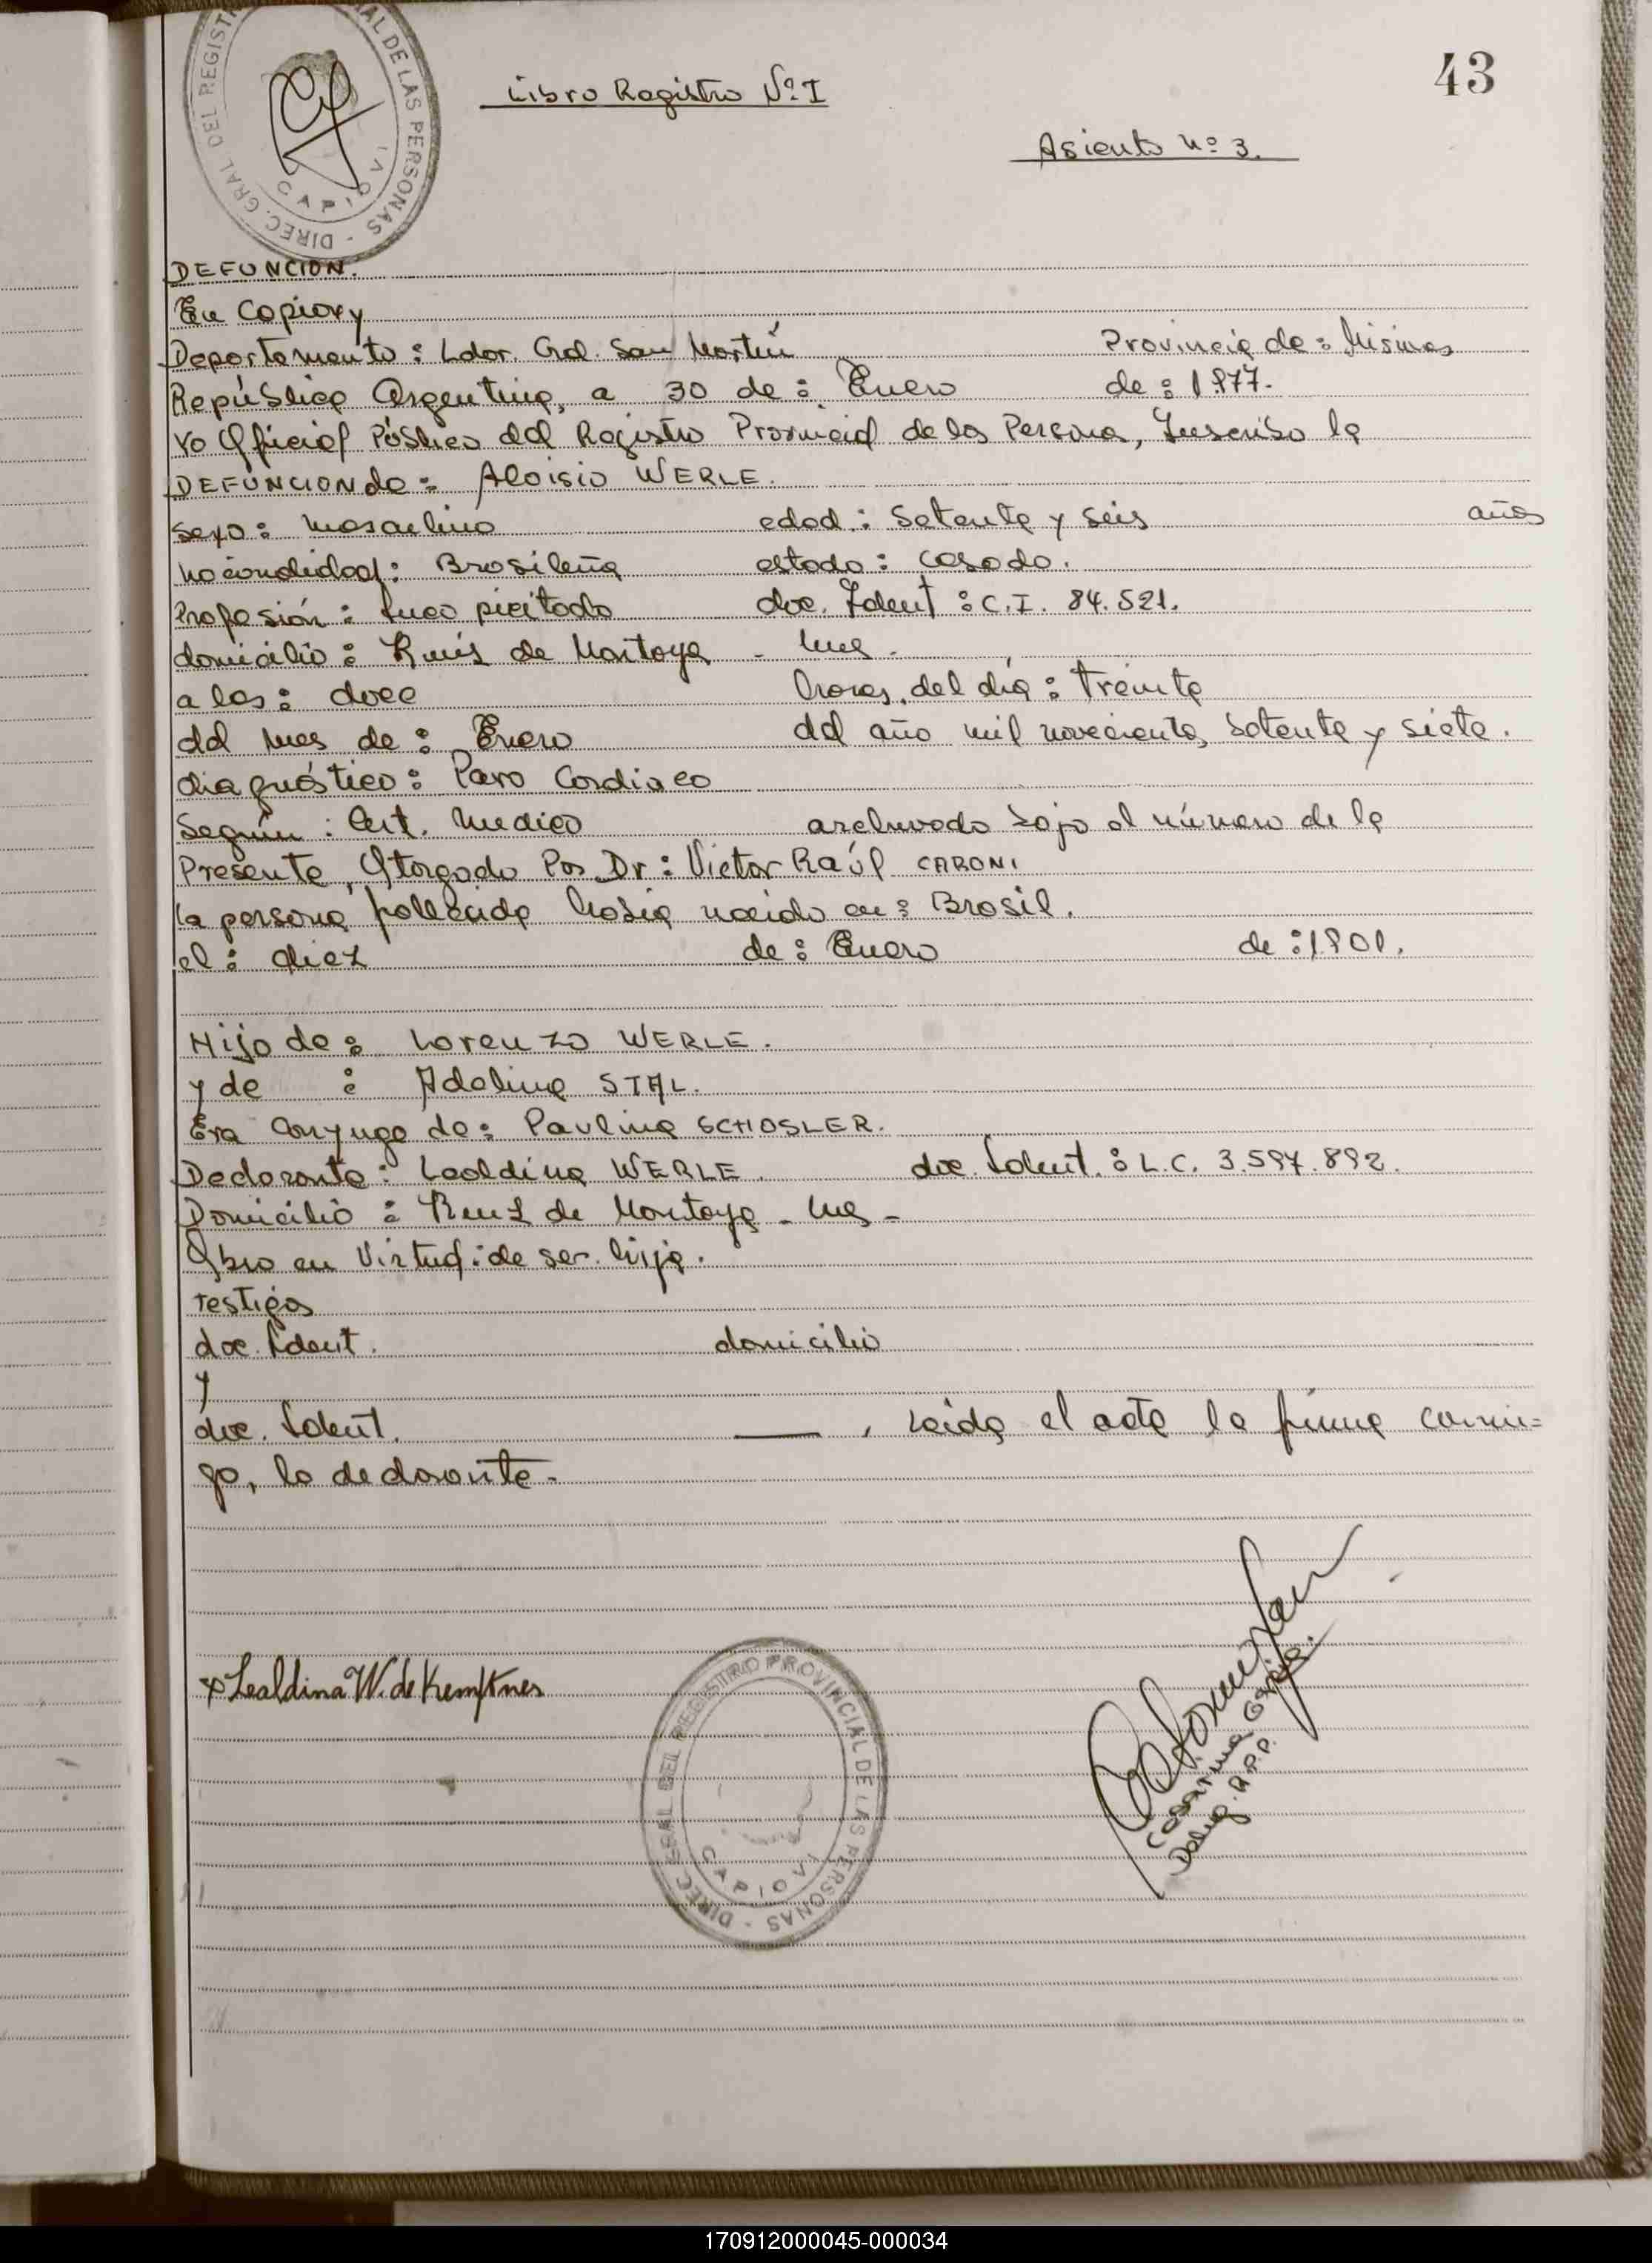 43
Libro Registro Nº I
Asiento Nº 3.
DIREC. GRAL DEL REGISTR AL DE LAS PERSONAS
CAPIOVI
DEFUNCION.
En Capiovy
Departamento: Ldor. Gral. San Martín Provincia de: Misiones
República Argentina, a 30 de: Enero de: 1977.
Yo Oficial Público del Registro Provincial de las Personas, Inscribo la
DEFUNCION de: Aloisio WERLE.
sexo: masculino edad: Setenta y seis años
nacionalidad: Brasileña estado: casado.
Profesión: doc. Ident: C.I. 84.521.
domicilio: Ruís de Montoya - Mes -
a las: doce horas, del día: treinta
del mes de: Enero del año mil novecientos setenta y siete.
diagnóstico: Paro Cardiaco
Según: Cert. Medico archivado bajo el número de la
Presente, Otorgado Por Dr: Victor Raúl CARONI
la persona fallecida había nacido en: Brasil.
el: diez de: Enero de: 1.901.
Hijo de: Lorenzo WERLE.
y de : Adelina STAL.
Era Conyuge de: Paulina SCHOSLER.
Declarante: Lealdina WERLE. doc. Ident.: L.C. 3.597.892.
Domicilio: Ruiz de Montoya - Mes -
Obro en Virtud: de ser hija.
testigos
doc. Ident. domicilio
y
doc. Ident. , Leída el acta la firma conmi=
go, la declarante.
x Lealdina W. de Kemftnes
DIREC. GRAL DEL REGISTRO PROVINCIAL DE LAS PERSONAS
CAPIOVI
Deleg. R.P.P.
170912000045-000034